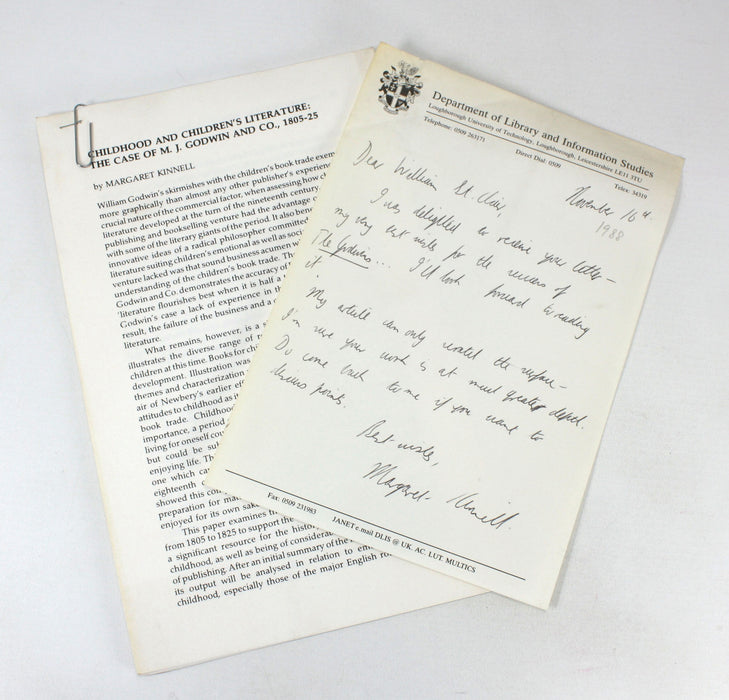 CHILDHOOD AND CHILDREN'S LITERATURE:
THE CASE OF M. J. GODWIN AND CO., 1805-25
by MARGARET KINNELL
William Godwin's skirmishes with the children's book trade
more graphically than almost any other publisher's
crucial nature of the commercial factor, when assessing how
literature developed at the turn of the nineteenth century.
publishing and bookselling venture had the advantage
with some of the literary giants of the period. It also
innovative ideas of a radical philosopher committed
literature suiting children's emotional as well as
venture lacked was that sound business acumen
understanding of the children's book trade.
Godwin and Co. demonstrates the accuracy of
'literature flourishes best when it is half a
Godwin's case a lack of experience in the
result, the failure of the business and a
literature.
What remains, however, is a
illustrates the diverse range of
children at this time. Books for
development. Illustration was
themes and characterization
air of Newbery's earlier
attitudes to childhood as
book trade.
importance, a period
living for oneself
but could be
enjoying life.
one which
eighteenth
showed this
preparation for
enjoyed for its own
This paper examines
from 1805 to 1825 to support the
a significant resource for the
childhood, as well as being of
of publishing. After an initial summary of the
its output will be analysed in relation to
childhood, especially those of the major English
Department of Library and Information Studies
Loughborough University of Technology, Loughborough, Leicestershire LE11 3TU
Telephone: 0509 263171 Direct Dial: 0509 Telex: 34319
November 16th
1988
Dear William St. Clair,
I was delighted to receive your letter –
my very best wishes for the success of
The Godwins... I'll look forward to reading
it.
My article can only scratch the surface –
I'm sure your work is at much greater depth.
Do come back to me if you want to
discuss points.
Best wishes,
Margaret Kinnell.
Fax: 0509 231983 JANET e.mail DLIS @ UK. AC. LUT. MULTICS